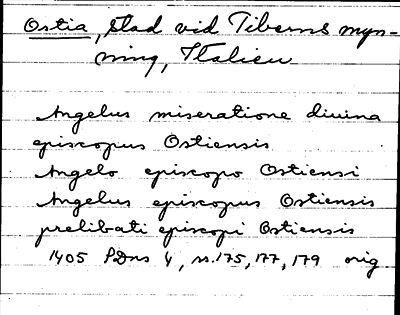 Ostia, stad vid Tiberns myn-
ning, Italien
Angelus miseratione divina
episcopus Ostiensis
Angelo episcopo Ostiensi
Angelus episcopus Ostiensis
prelibati episcopi Ostiensis
1405 PDns 4, n. 175, 177, 179 orig